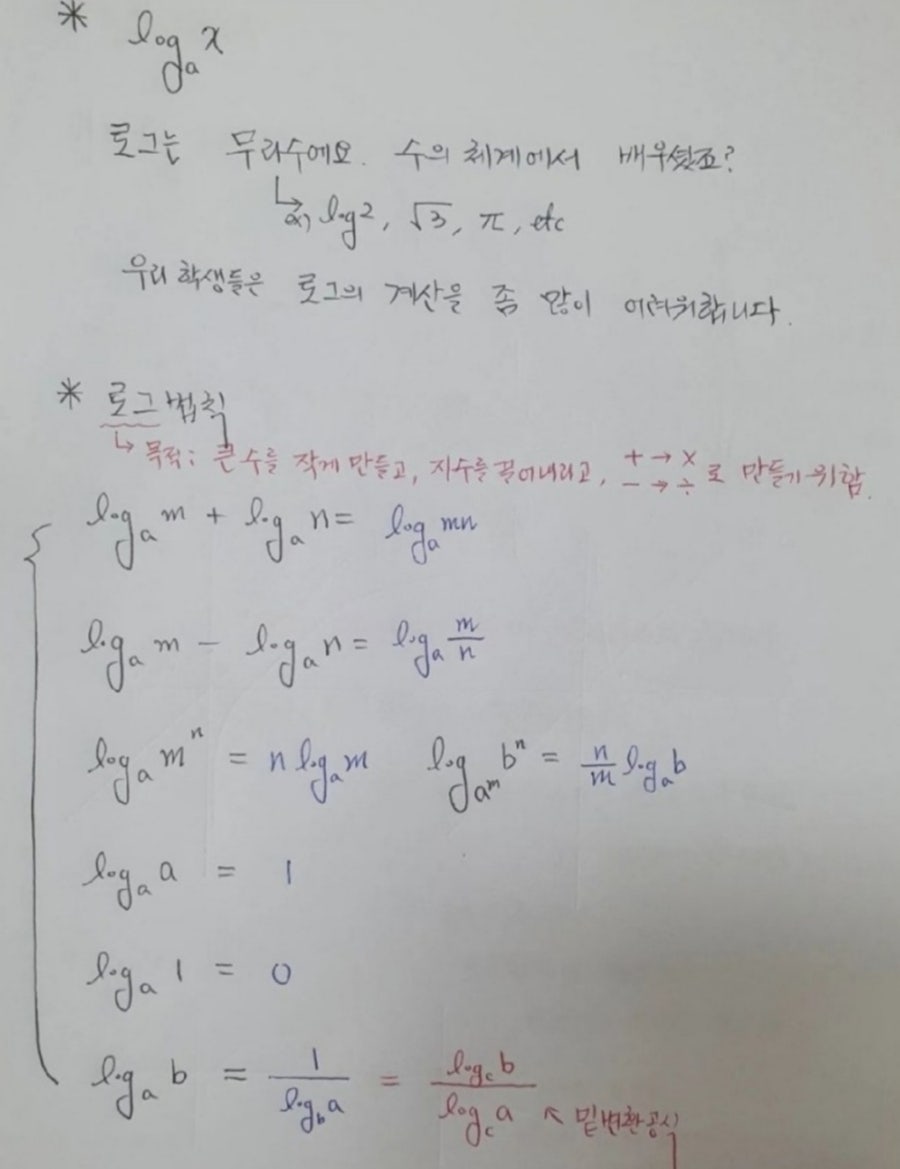 * logₐ x
로그는 무리수에요. 수의 체계에서 배우셨죠?
↳ ex) log2, √3, π, etc
우리 학생들은 로그의 계산을 좀 많이 어려워합니다.
* 로그법칙
↳ 목적: 큰 수를 작게 만들고, 지수를 끌어내리고, + → × - → ÷ 로 만들기 위함.
logₐ m + logₐ n = logₐ mn
logₐ m - logₐ n = logₐ m/n
logₐ mⁿ = n logₐ m log_{aᵐ} bⁿ = n/m logₐ b
logₐ a = 1
logₐ 1 = 0
logₐ b = 1/log_b a = log_c b/log_c a ↖ 밑변환공식